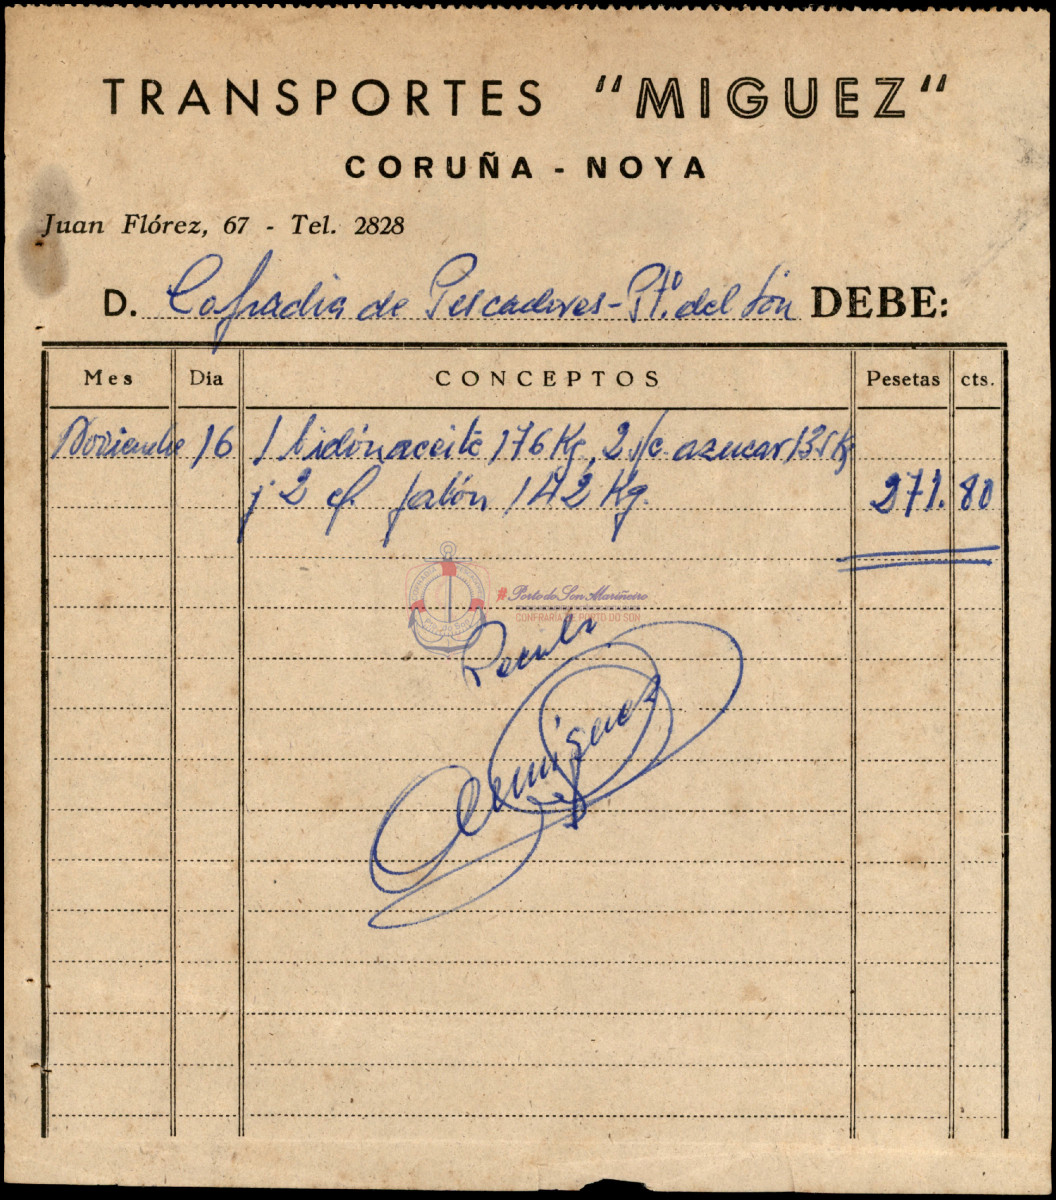 TRANSPORTES "MIGUEZ"
CORUÑA - NOYA
Juan Flórez, 67 - Tel. 2828
D. Cofradia de Pescadores - Pto. del Son DEBE:
Mes Dia CONCEPTOS Pesetas cts.
Noviembre 16 1 bidón aceite 176 Kg, 2 s/c. azucar 135 Kg
y 2 c/. jabón 142 Kg. 271. 80
#Porto do Son Mariñeiro
CONFRARÍA DE PORTO DO SON
Recibi